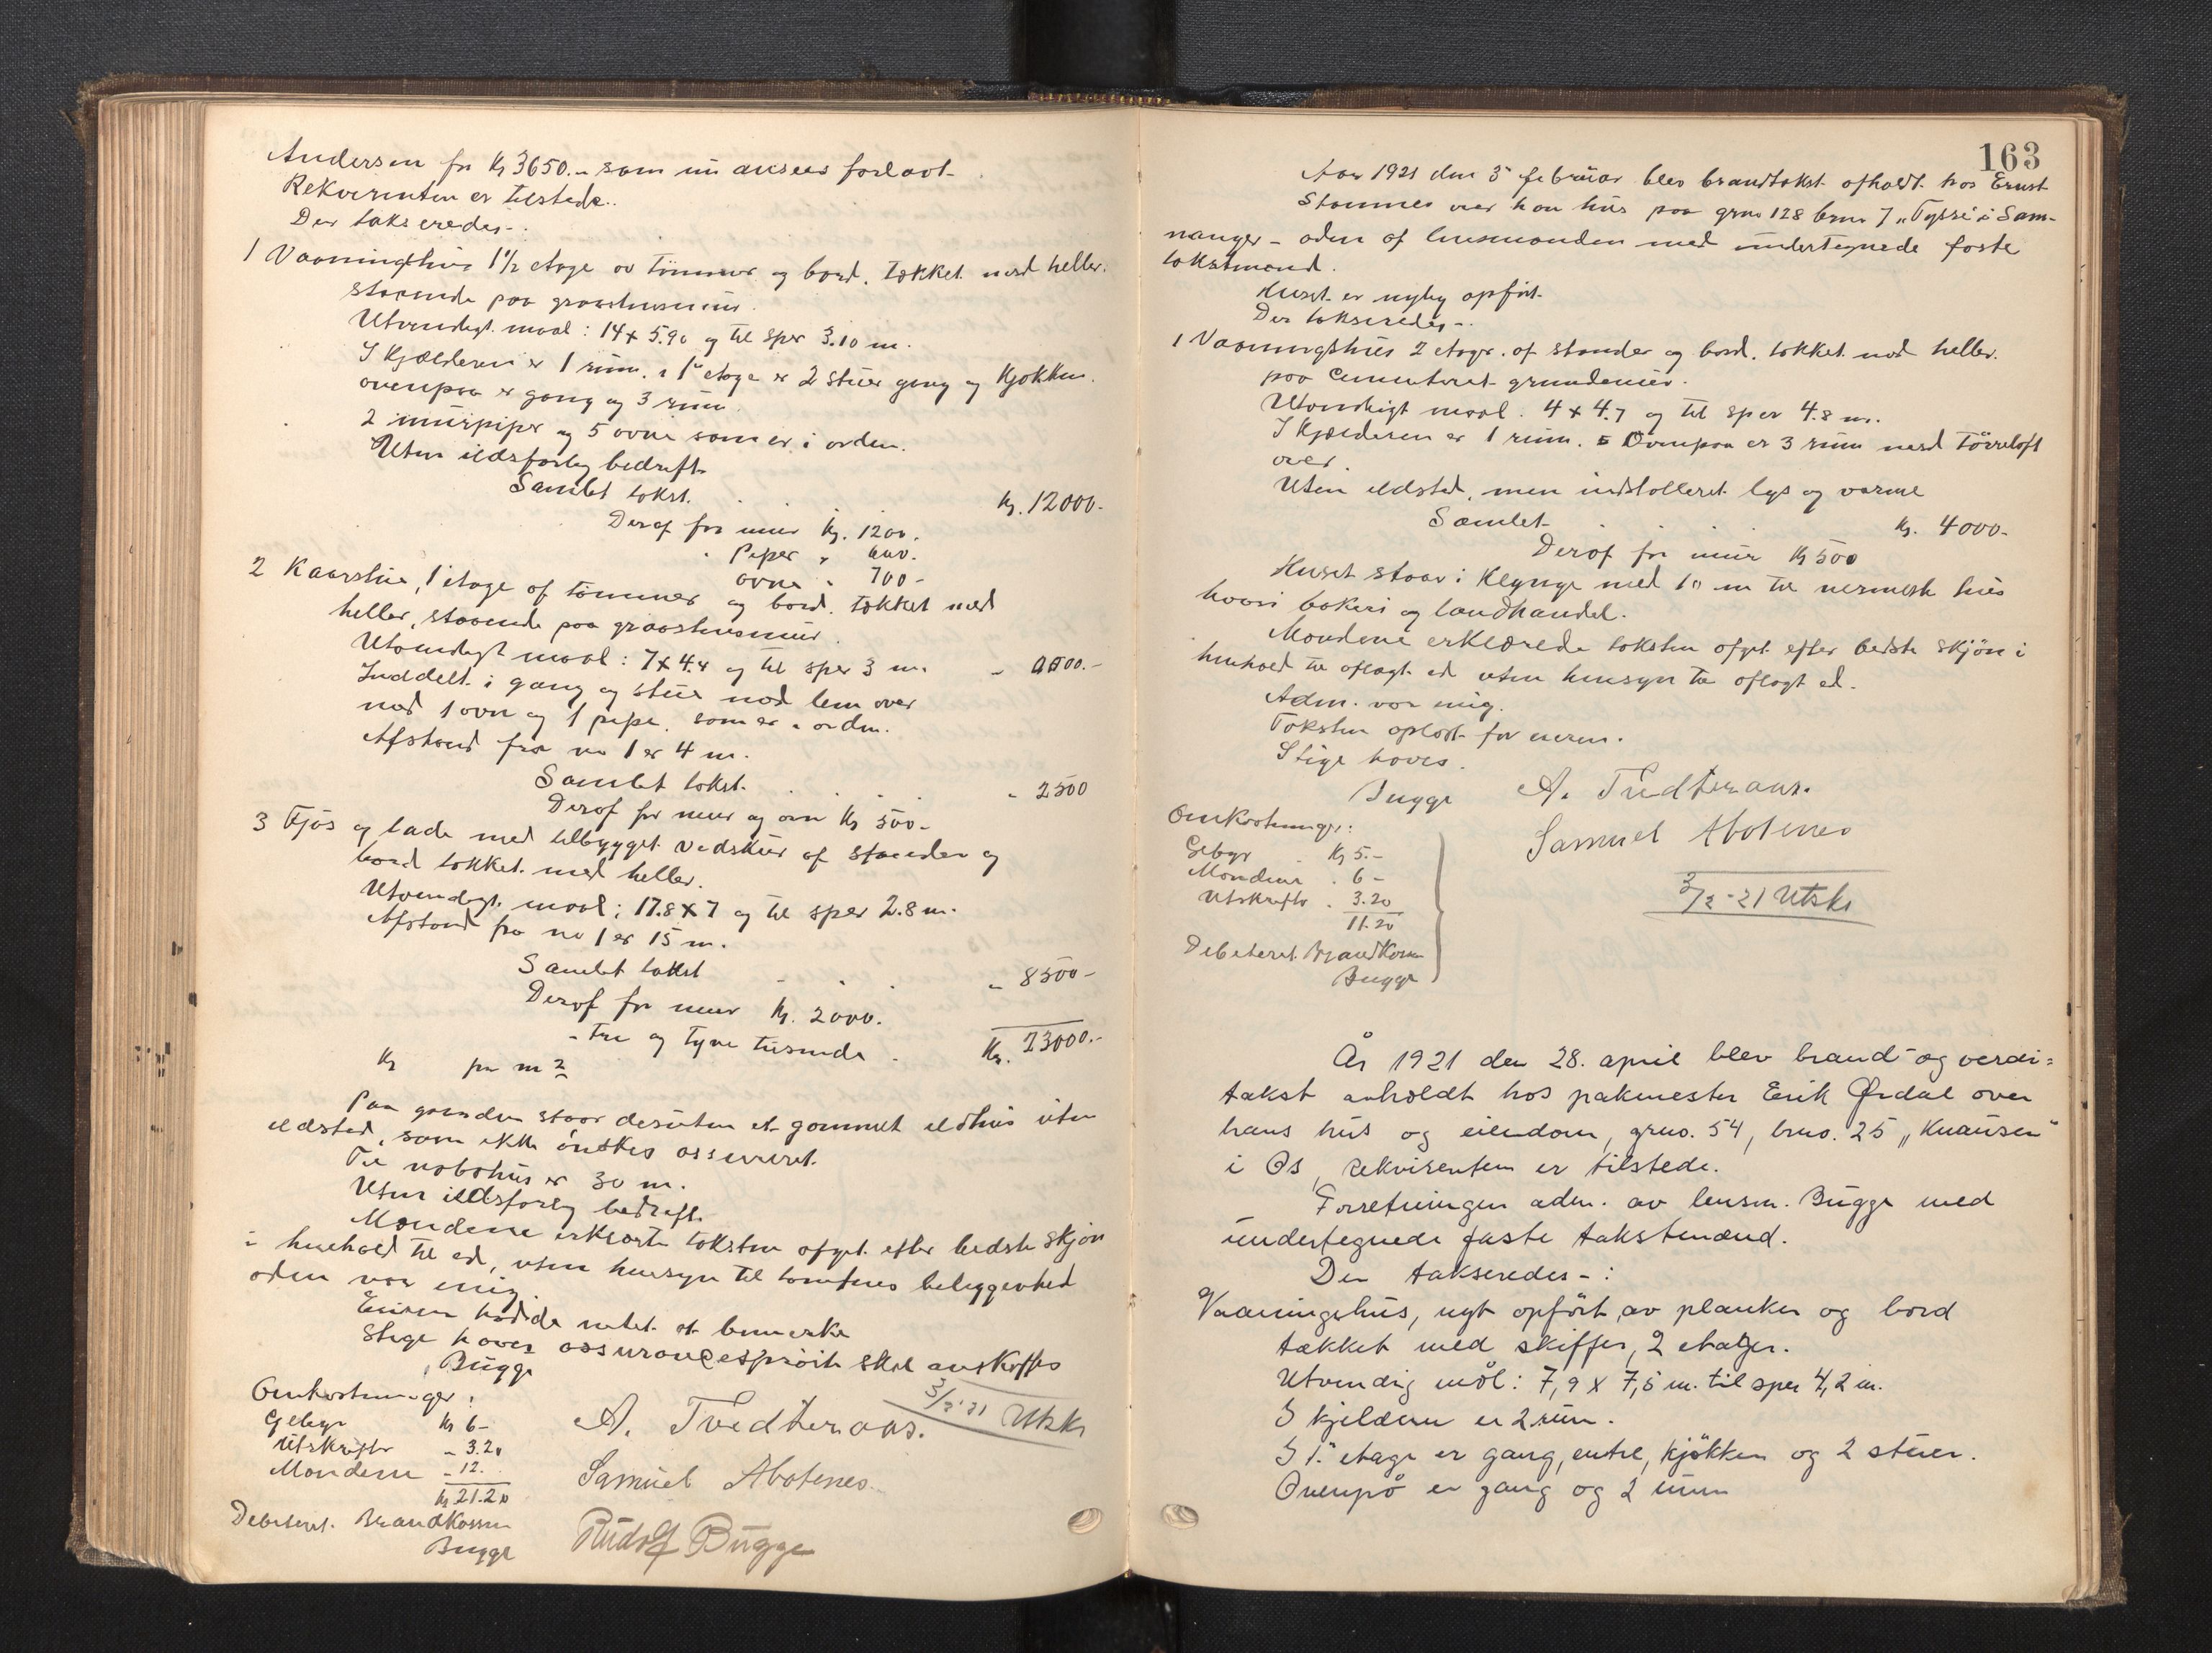 Andersen for Kr 3650.- som nu ansees forlavt.
Rekvirenten er tilstede.
Der takseredes-:
1 Vaaningshus 1 1/2 etage av tømmer og bord. tækket med heller.
staaende paa graastensmur.
Utvendigt maal: 14 x 5.90 og til sper 3.10 m.
I Kjælderen er 1 rum. i 1ste etage er 2 stuer gang og Kjøkken.
ovenpaa er gang og 3 rum.
2 murpiper og 5 ovne som er i orden.
Uten ildsfarlig bedrift.
Samlet takst. Kr. 12000.-
Deraf for mur Kr. 1200.
" Piper " 600.
ovne " 700-
2 Kaarstue, 1 etage af tømmer og bord. tækket med
heller, staaende paa graastensmur.
Utvendigt maal: 7 x 4.4 og til sper 3 m.
Inddelt i gang og stue med lem over
med 1 ovn og 1 pipe, som er i orden.
Afstand fra no 1 er 4 m.
Samlet takst. " 2500
Deraf for mur og ovn Kr 500-
3 Fjøs og lade med tilbygget Vedskur af stender og
bord tækket med heller.
Utvendigt maal: 17.8 x 7 og til sper 2.8 m.
Afstand fra no 1 er 15 m.
Samlet takst " 8500-
Deraf for mur Kr. 2000.
- tre og tyve tusinde - Kr. 23000.-
Kr pr m2
Paa gaarden staar desuten et gammelt ildhus uten
ildsted, som ikke ønskes assureret.
Til nabohus er 30 m.
Uten ildsfarlig bedrift.
Mændene erklærte taksten afgit efter bedste skjøn
i henhold til ed, uten hensyn til tomtens beliggenhed
Eieren hadde intet at bemerke
Stige haves assurancesprøite skal anskaffes
Bugge
3/2-21 Utskr
Omkostninger:
Gebyr Kr 6-
Utskrifter " 3.20
Mændene " 12.
Kr 21.20
Debiteret Brandkassen
Bugge
A. Tvedteraas.
Samuel Abotenes
Rudolf Bugge
163
Aar 1921 den 3 februar blev brandtakst afholdt hos Ernst
Stømmes over han hus paa gno 128 bno 7 "Tysse" i Sam-
nanger - aden af lensmanden med undertegnede faste
takstmænd.
Huset er nylig opført.
Der takseredes-:
1 Vaaningshus 2 etager. af stender og bord. tækket med heller.
paa Cementeret grundmur.
Utvendigt maal. 4 x 4.7 og til sper 4.8 m.
I Kjælderen er 1 rum. Ovenpaa er 3 rum med Tørreloft
over.
Uten ildsted, men indstalleret lys og varme
Samlet Kr. 4000-
Deraf for mur Kr 500
Huset staar i Klynge med 10 m til nermeste hus
hvori bakeri og landhandel.
Mændene erklærede taksten afgit efter bedste skjøn i
henhold til aflagt ed uten hensyn til aflagt ed.
Adm. var enig.
Taksten oplæst for eieren.
Stige haves.
Bugge
A. Tvedteraas.
Samuel Abotenes
3/2-21 Utskr
Omkostninger:
Gebyr Kr 5.-
Mændene " 6-
Utskrifter " 3.20
11.20
Debiteret Brandkassen
Bugge
År 1921 den 28. april blev brand- og verdi-
takst avholdt hos pakmester Erik Ørdal over
hans hus og eiendom, gno. 54, bno. 25 "Knausen"
i Os, Rekvirenten er tilstede.
Forretningen adm. av lensm. Bugge med
undertegnede faste takstmænd.
Der takseredes-:
Vaaningshus, nyt opført, av planker og bord
tækket med skiffer, 2 etager.
Utvendig mål: 7,9 x 7,5 m. til sper 4,2 m.
I kjelderen er 2 rum.
I 1ste etage er gang, entre, kjøkken og 2 stuer.
Ovenpå er gang og 2 rum